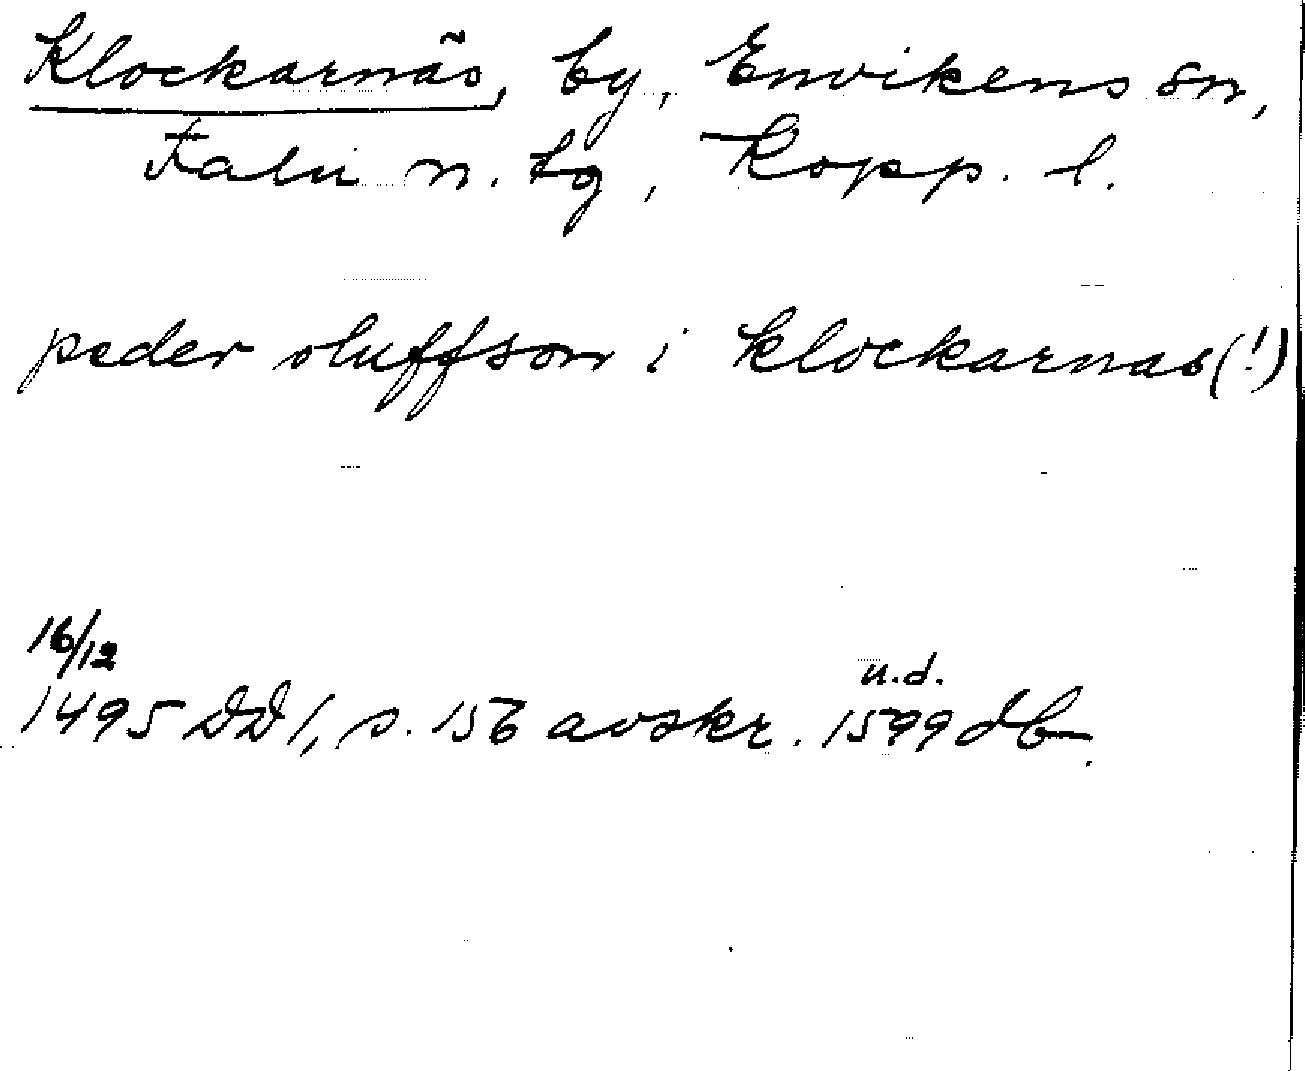 Klockarnäs, by, Envikens sn,
Falu n. tg, Kopp. l.
peder oluffson i klockarnas(!)
16/12
u.d.
1495 DD 1, s. 156 avskr. 1599 db.